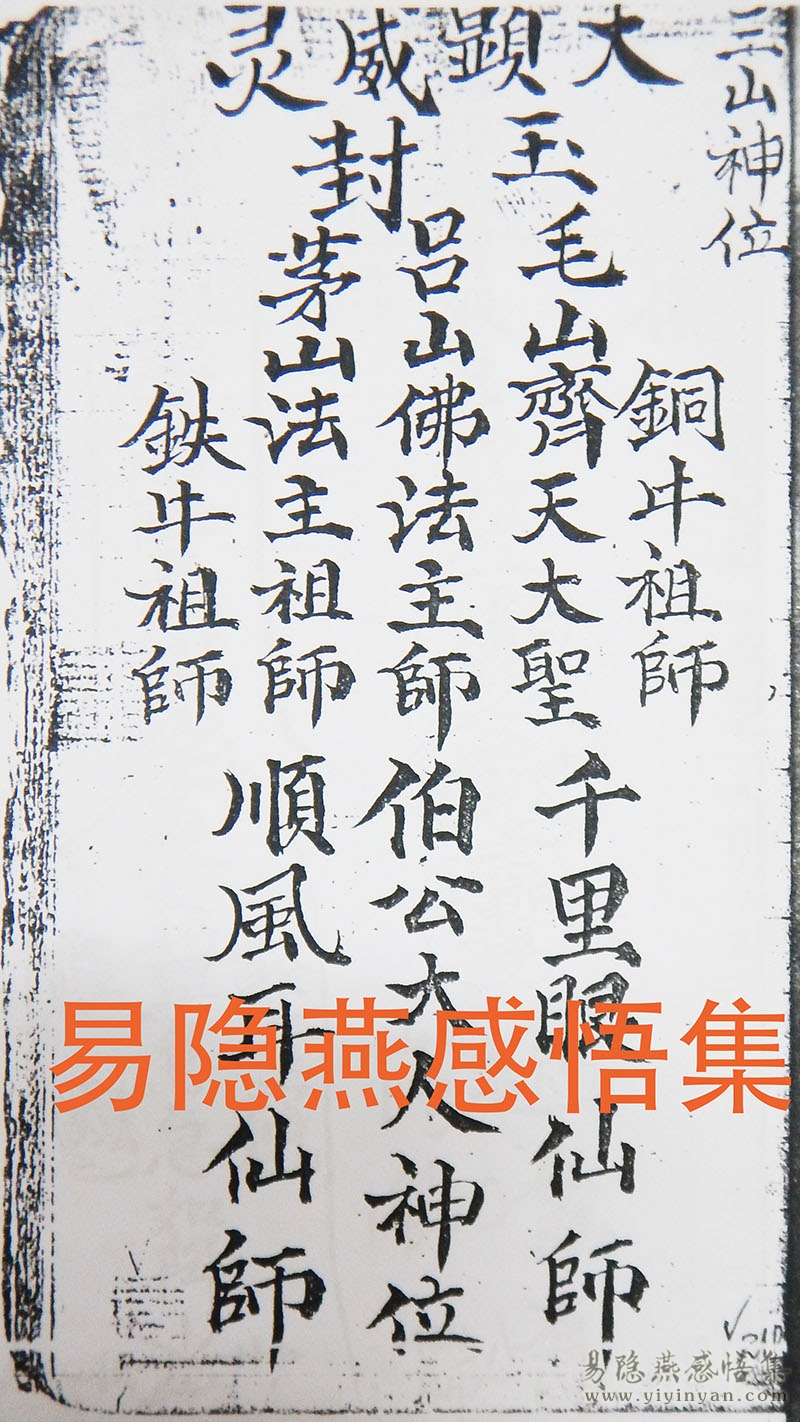 三山神位
大顕威灵
玉封
銅牛祖師
毛山齊天大聖
吕山佛法主師
茅山法主祖師
鉄牛祖師
千里眼仙師
伯公大人神位
順風耳仙師
易隐燕感悟集
易隐燕感悟集
www.yiyinyan.com